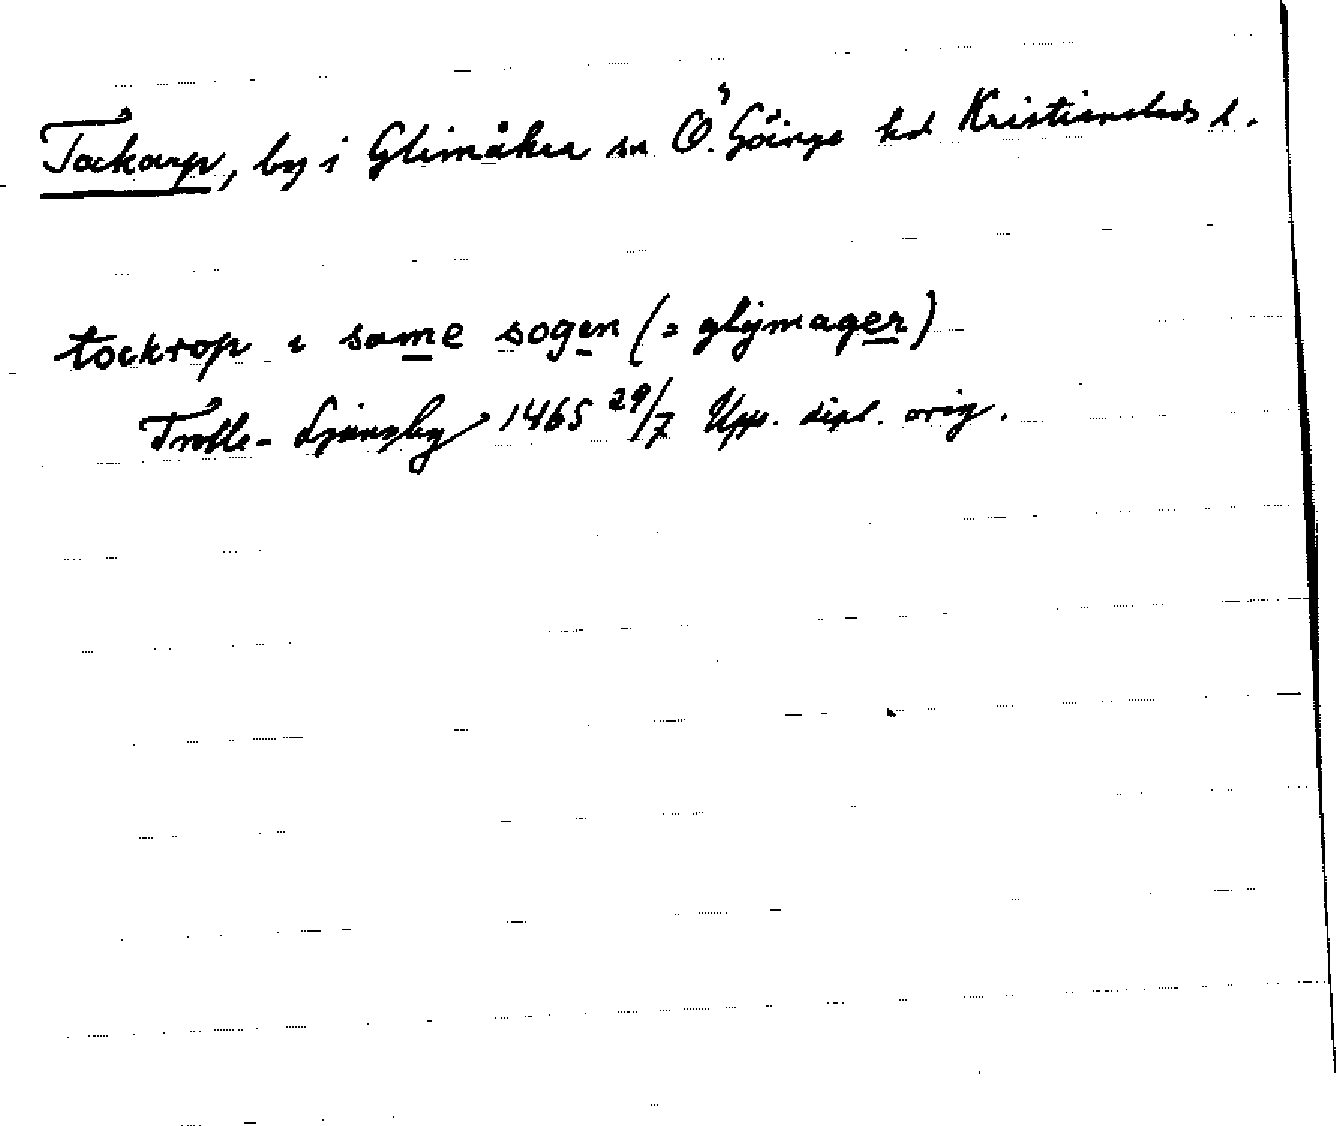 Tockarp, by i Glimåkra sn Ö. Göinge hd Kristianstads l.
tockrop i same sogen (= glijmager)
Trolle-Ljungby 1465 29/7 Upps. dipl. orig.